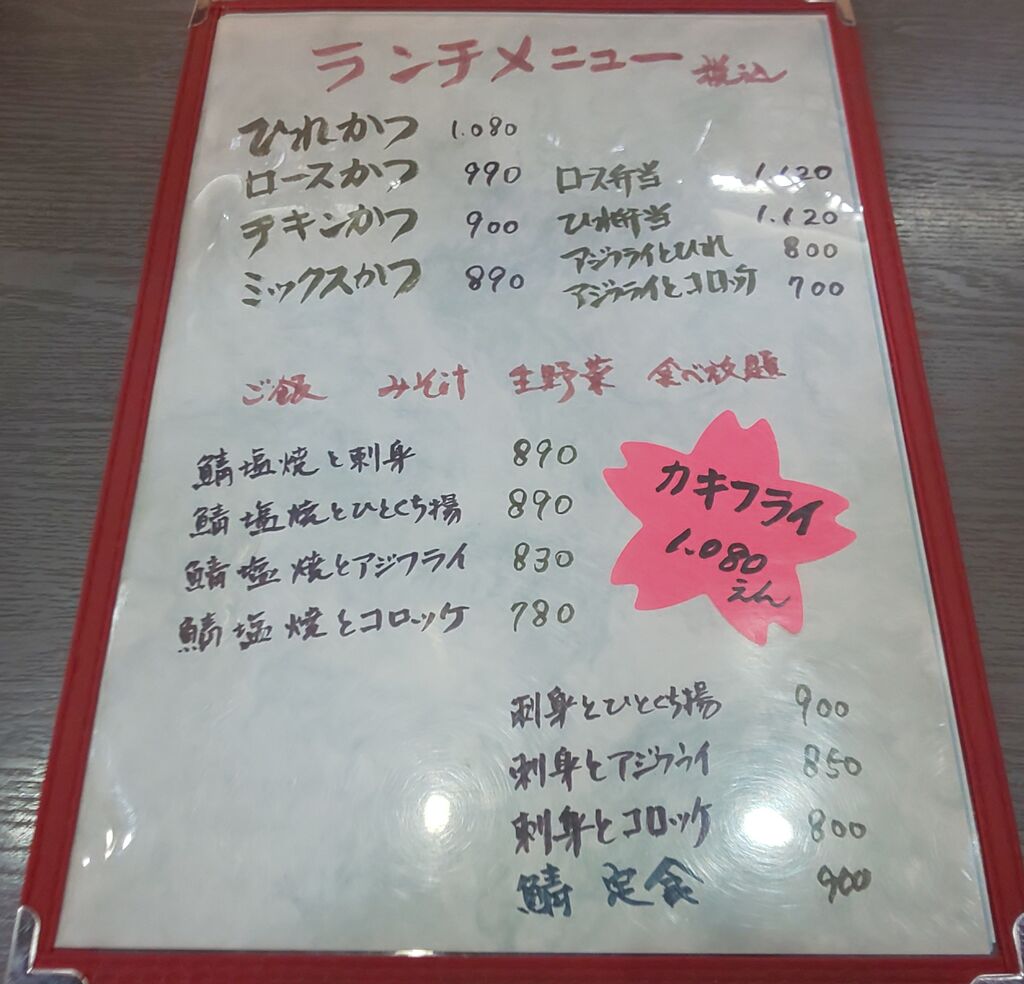 ランチメニュー 税込
ひれかつ 1.080
ロースかつ 990
チキンかつ 900
ミックスかつ 890
ロース弁当 1.120
ひれ弁当 1.120
アジフライとひれ 800
アジフライとコロッケ 700
ご飯 みそ汁 生野菜 食べ放題
鯖塩焼と刺身 890
鯖塩焼とひとくち揚 890
鯖塩焼とアジフライ 830
鯖塩焼とコロッケ 780
カキフライ
1.080
えん
刺身とひとくち揚 900
刺身とアジフライ 850
刺身とコロッケ 800
鯖定食 900